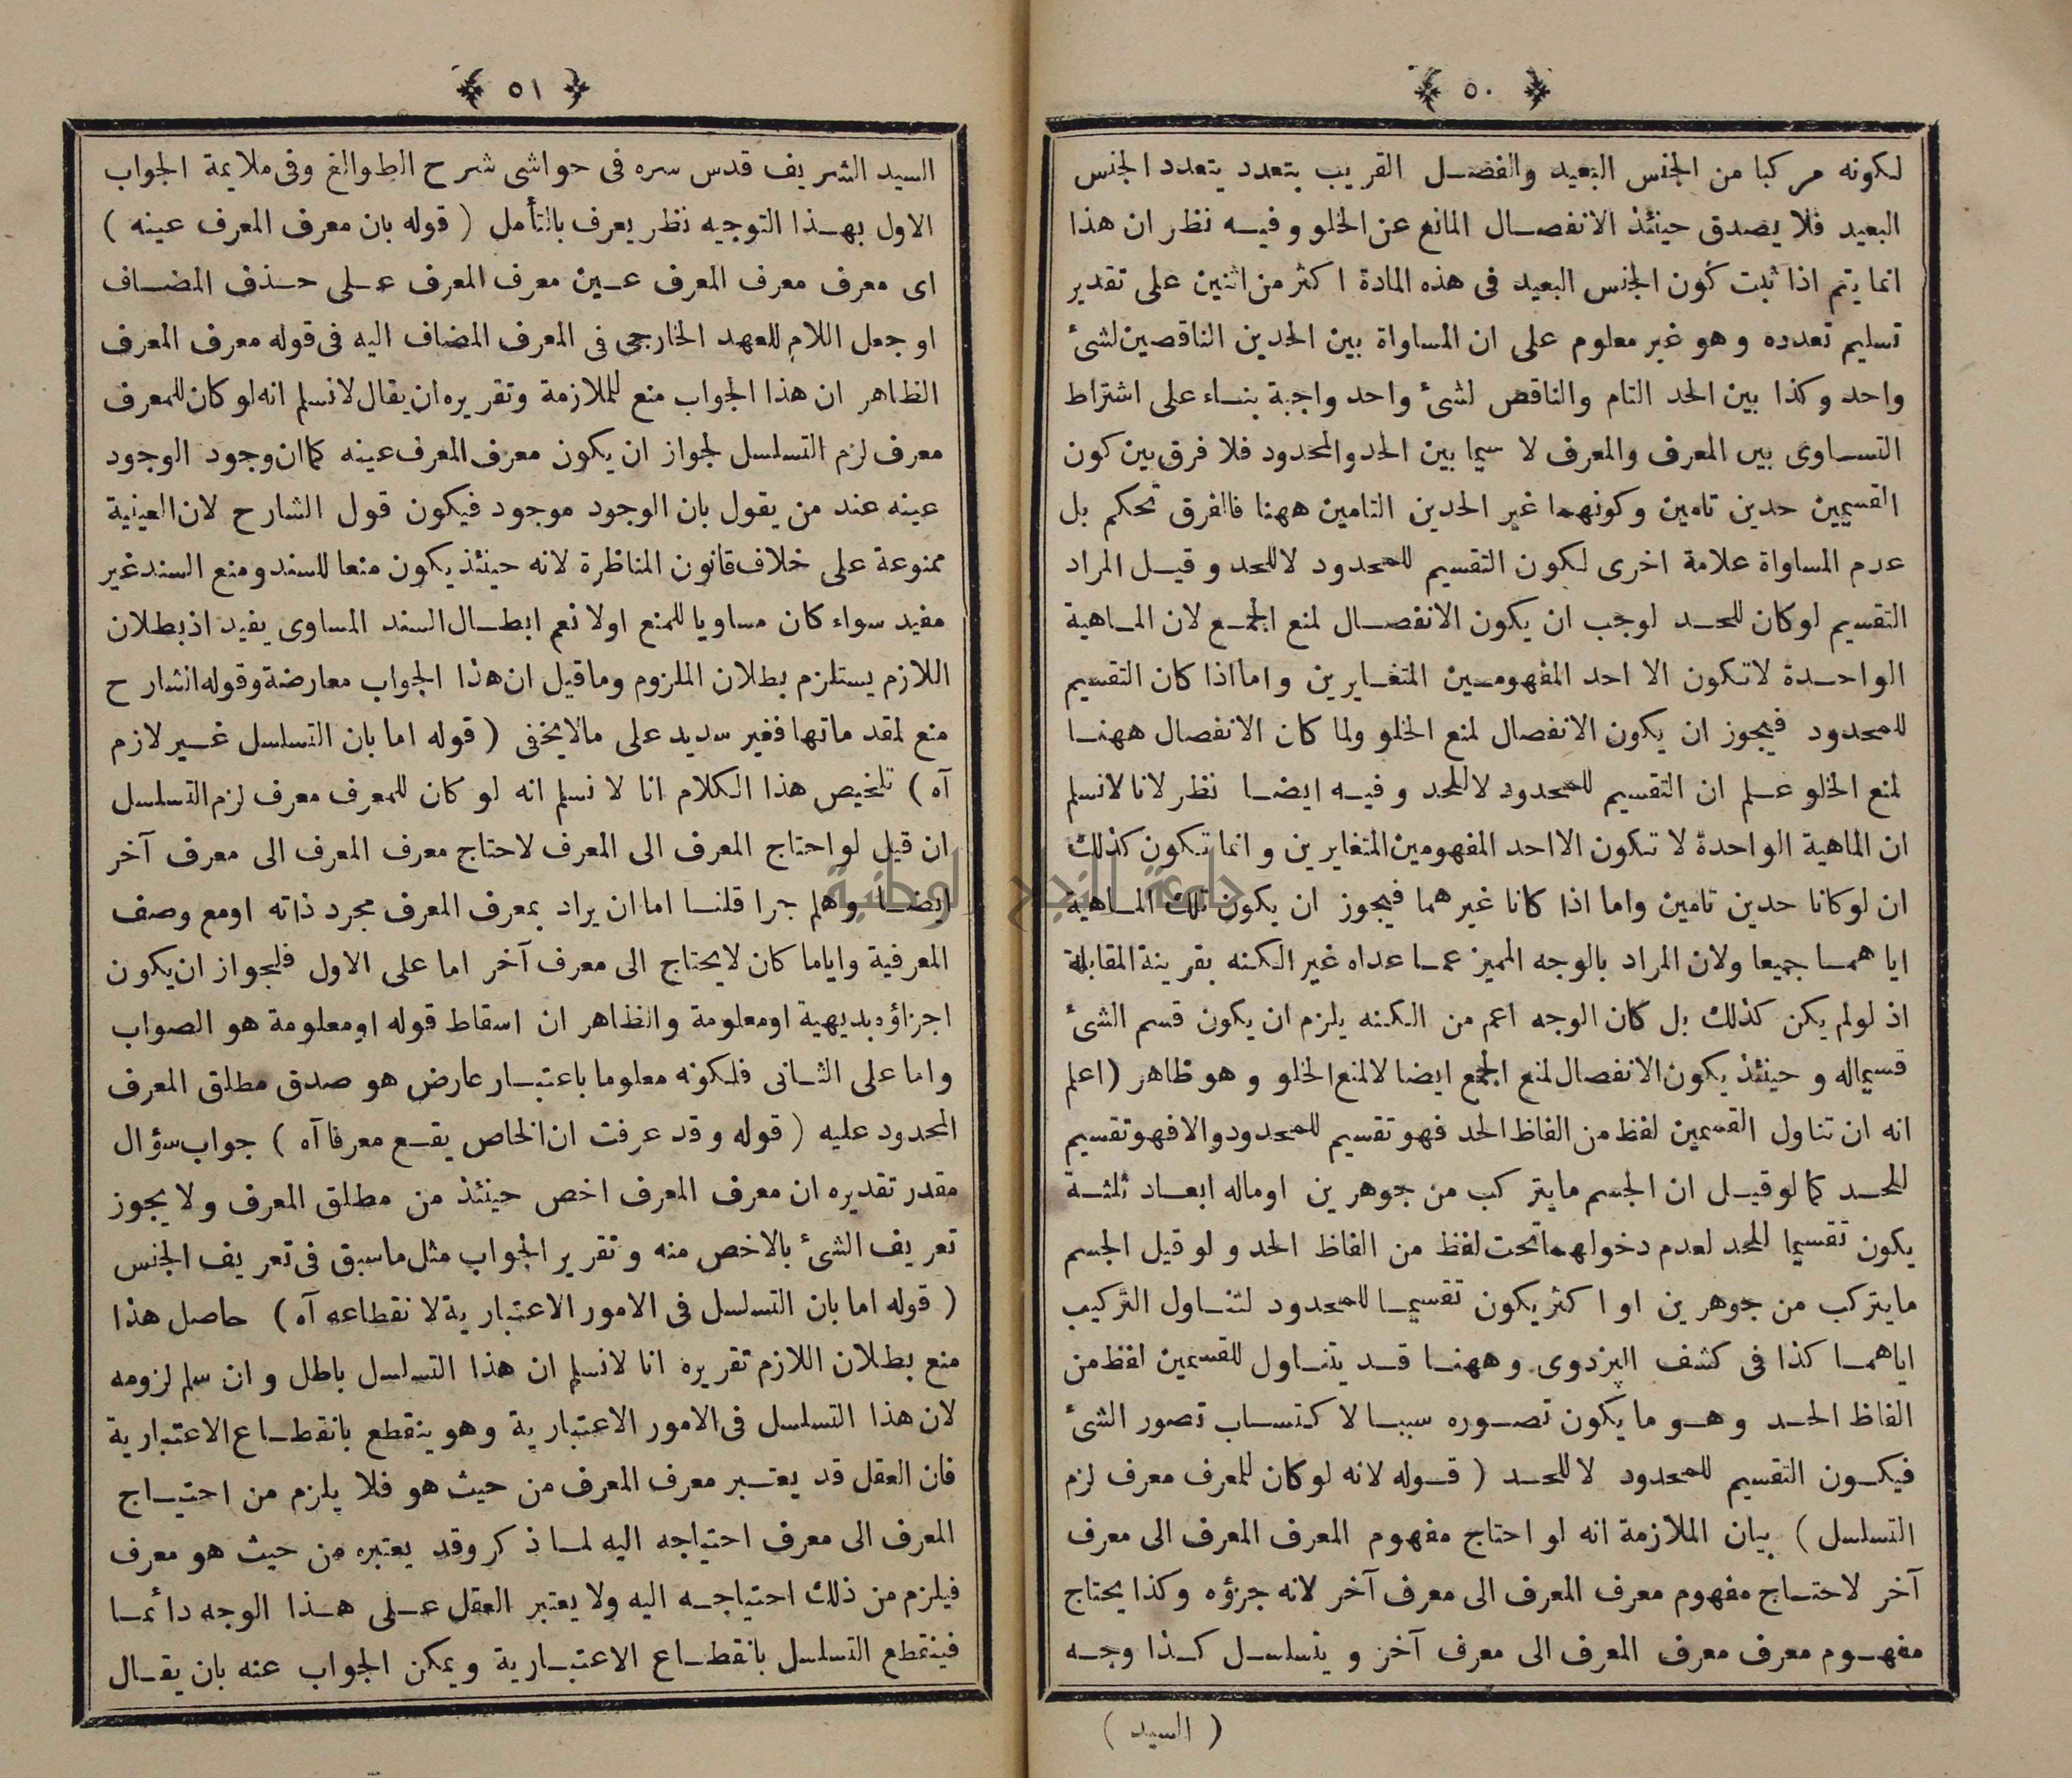 ﴿ ٥٠ ﴾
لكونه مركبا من الجنس البعيد والفصل القريب يتعدد بتعدد الجنس
البعيد فلا يصدق حينئذ الانفصال المانع عن الخلو وفيه نظر ان هذا
انما يتم اذا ثبت كون الجنس البعيد فى هذه المادة اكثر من اثنين على تقدير
تسليم تعدده وهو غير معلوم على ان المساواة بين الحدين الناقصين لشئ
واحد وكذا بين الحد التام والناقص لشئ واحد واجبة بناء على اشتراط
التساوى بين المعرف والمعرف لا سيما بين الحد والمحدود فلا فرق بين كون
القسمين حدين تامين وكونهما غير الحدين التامين ههنا فالفرق تحكم بل
عدم المساواة علامة اخرى لكون التقسيم للمحدود لا للحد وقيل المراد
التقسيم لوكان للحد لوجب ان يكون الانفصال لمنع الجمع لان الماهية
الواحدة لاتكون الا احد المفهومين المتغايرين واما اذا كان التقسيم
للمحدود فيجوز ان يكون الانفصال لمنع الخلو ولما كان الانفصال ههنا
لمنع الخلو علم ان التقسيم للمحدود لا للحد وفيه ايضا نظر لانا لانسلم
ان الماهية الواحدة لا تكون الااحد المفهومين المتغايرين وانما تكون كذلك
ان لوكانا حدين تامين واما اذا كانا غيرهما فيجوز ان يكون تلك الماهية
اياهما جميعا ولان المراد بالوجه المميز عما عداه غير الكنه بقرينة المقابلة
اذ لولم يكن كذلك بل كان الوجه اعم من الكنه يلزم ان يكون قسم الشئ
قسيماله وحينئذ يكون الانفصال لمنع الجمع ايضا لالمنع الخلو وهو ظاهر (اعلم
انه ان تناول القسمين لفظ من الفاظ الحد فهو تقسيم للمحدود والافهو تقسيم
للحد كما لوقيل ان الجسم ما يتركب من جوهرين اوماله ابعاد ثلثة
يكون تقسيما للحد لعدم دخولهما تحت لفظ من الفاظ الحد ولو قيل الجسم
مايتركب من جوهرين او اكثر يكون تقسيما للمحدود لتناول التركيب
اياهما كذا فى كشف البزدوى وههنا قد يتناول للقسمين لفظ من
الفاظ الحد وهو ما يكون تصوره سببا لاكتساب تصور الشئ
فيكون التقسيم للمحدود لا للحد ( قوله لانه لوكان للمعرف معرف لزم
التسلسل ) بيان الملازمة انه لو احتاج مفهوم المعرف المعرف الى معرف
آخر لاحتاج مفهوم معرف المعرف الى معرف آخر لانه جزؤه وكذا يحتاج
مفهوم معرف معرف المعرف الى معرف آخر ويتسلسل كذا وجه
( السيد )
﴿ ٥١ ﴾
السيد الشريف قدس سره فى حواشى شرح الطوالع وفى ملايمة الجواب
الاول بهذا التوجيه نظر يعرف بالتأمل ( قوله بان معرف المعرف عينه )
اى معرف معرف المعرف عين معرف المعرف على حذف المضاف
او جعل اللام للعهد الخارجى فى المعرف المضاف اليه فى قوله معرف المعرف
الظاهر ان هذا الجواب منع للملازمة وتقريره ان يقال لانسلم انه لو كان للمعرف
معرف لزم التسلسل لجواز ان يكون معرف المعرف عينه كما ان وجود الوجود
عينه عند من يقول بان الوجود موجود فيكون قول الشارح لان العينية
ممنوعة على خلاف قانون المناظرة لانه حينئذ يكون منعا للسند ومنع السند غير
مفيد سواء كان مساويا للمنع اولا نعم ابطال السند المساوى يفيد اذ بطلان
اللازم يستلزم بطلان الملزوم وما قيل ان هذا الجواب معارضة وقوله الشارح
منع لمقدماتها فغير سديد على مالايخفى ( قوله اما بان التسلسل غير لازم
آه ) تلخيص هذا الكلام انا لا نسلم انه لو كان للمعرف معرف لزم التسلسل
ان قيل لو احتاج المعرف الى المعرف لاحتاج معرف المعرف الى معرف آخر
ايضا وهلم جرا قلنا اما ان يراد بمعرف المعرف مجرد ذاته اومع وصف
المعرفية واياما كان لايحتاج الى معرف آخر اما على الاول فلجواز ان يكون
اجزاؤه بديهية اومعلومة والظاهر ان اسقاط قوله اومعلومة هو الصواب
واما على الثانى فلكونه معلوما باعتبار عارض هو صدق مطلق المعرف
المحدود عليه ( قوله وقد عرفت ان الخاص يقع معرفا آه ) جواب سؤال
مقدر تقديره ان معرف المعرف اخص حينئذ من مطلق المعرف ولا يجوز
تعريف الشئ بالاخص منه وتقرير الجواب مثل ماسبق فى تعريف الجنس
( قوله اما بان التسلسل فى الامور الاعتبارية لانقطاعه آه ) حاصل هذا
منع بطلان اللازم تقريره انا لانسلم ان هذا التسلسل باطل وان سلم لزومه
لان هذا التسلسل فى الامور الاعتبارية وهو ينقطع بانقطاع الاعتبارية
فان العقل قد يعتبر معرف المعرف من حيث هو فلا يلزم من احتياج
المعرف الى معرف احتياجه اليه لما ذكر وقد يعتبره من حيث هو معرف
فيلزم من ذلك احتياجه اليه ولا يعتبر العقل على هذا الوجه دائما
فينقطع التسلسل بانقطاع الاعتبارية ويمكن الجواب عنه بان يقال
جامعة النجاح الوطنية